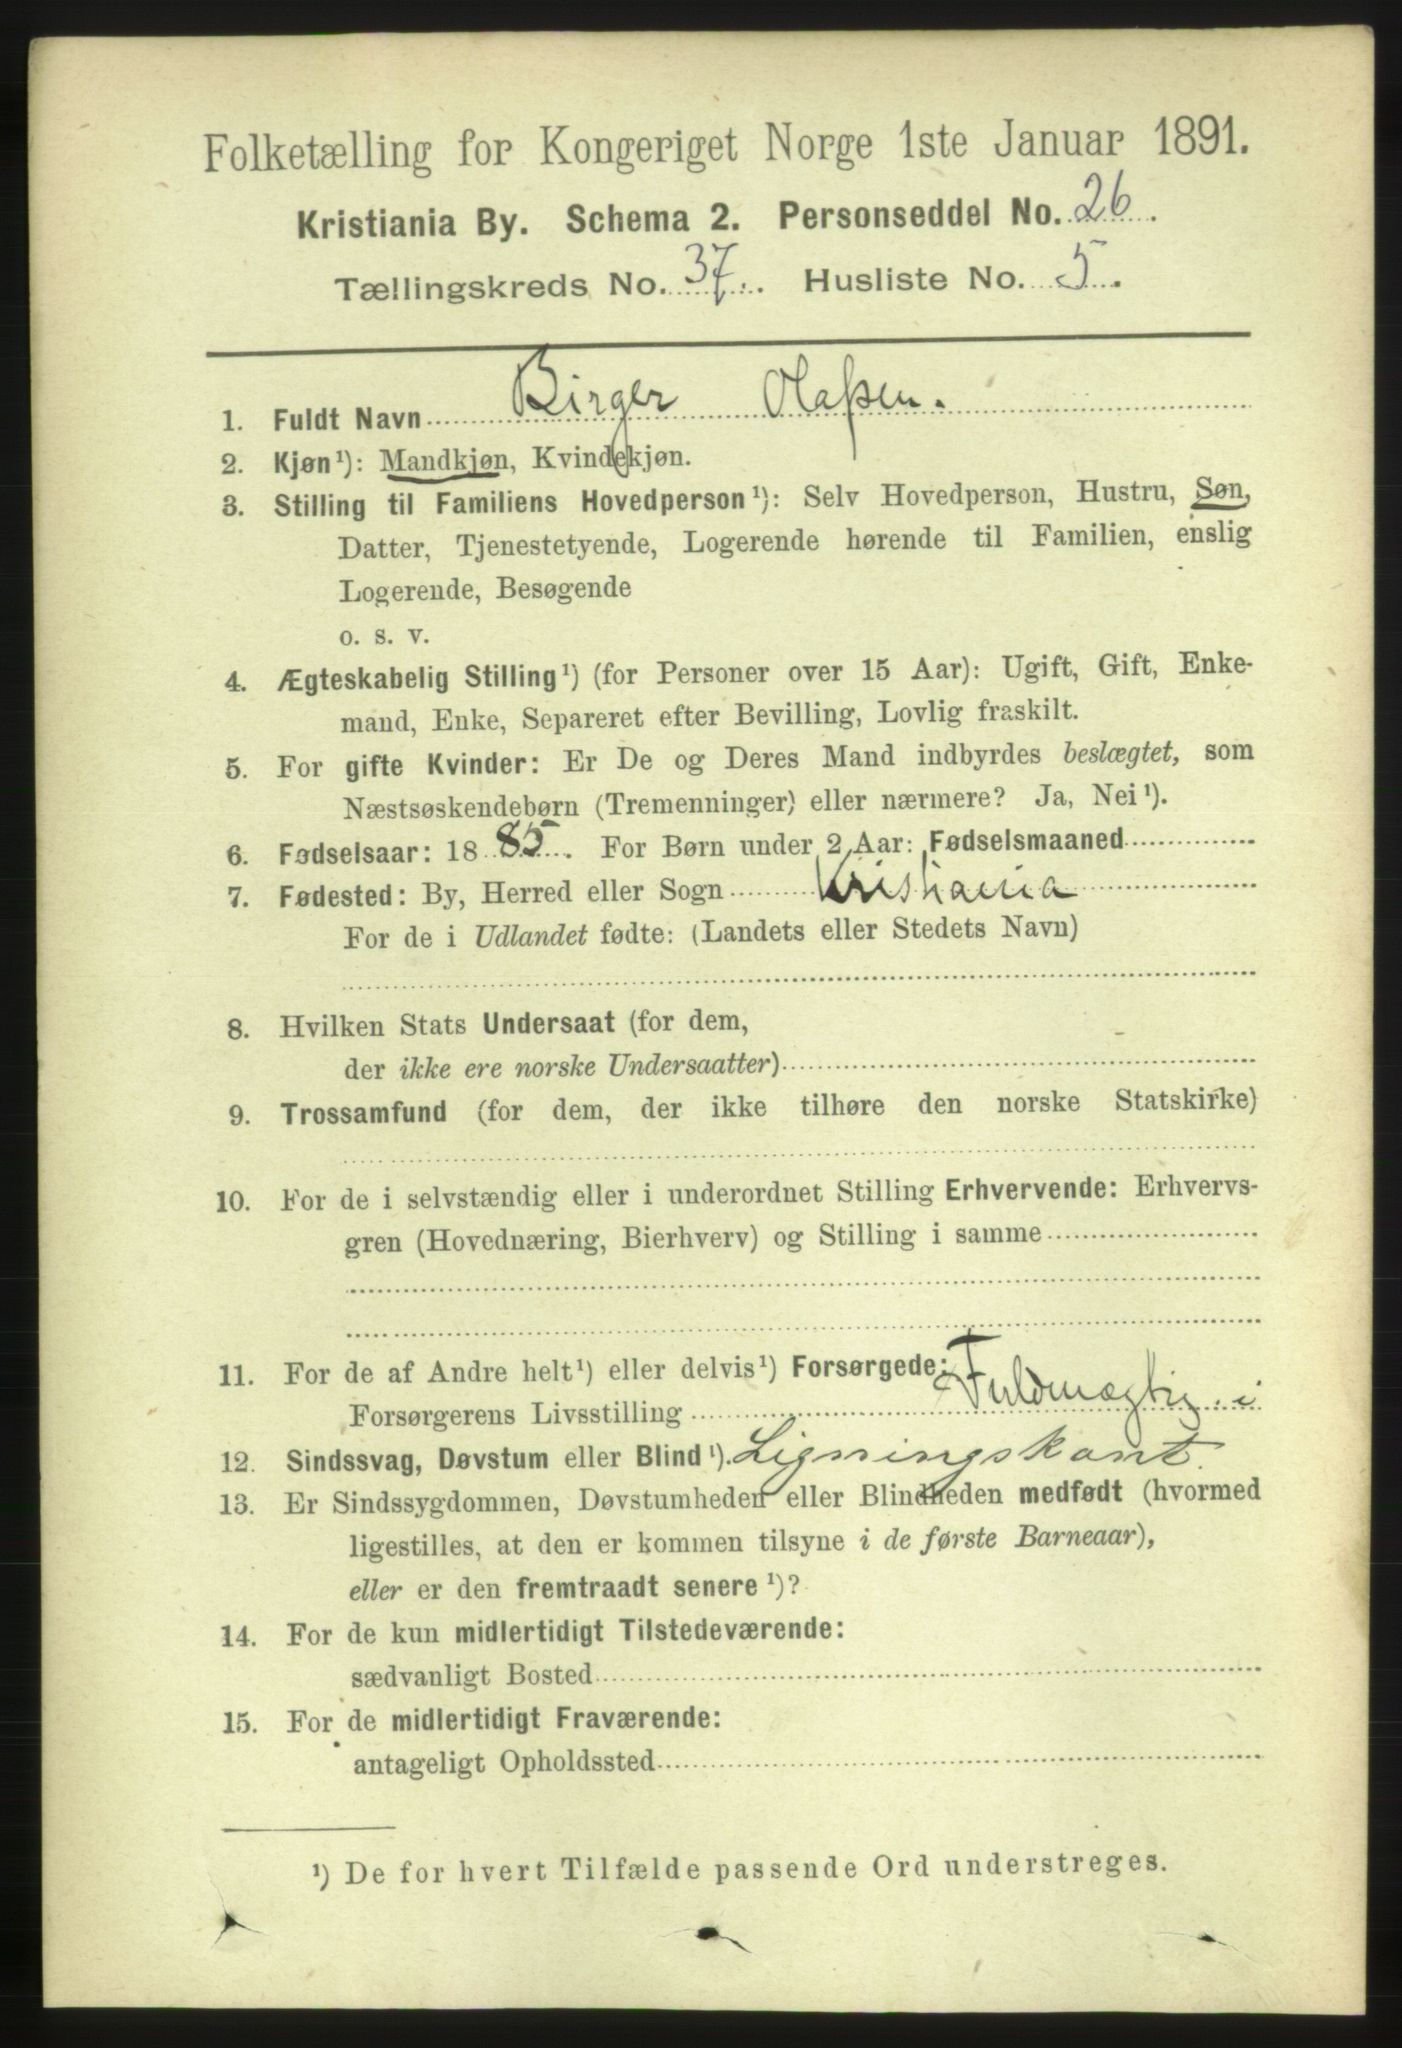 Folketælling for Kongeriget Norge 1ste Januar 1891.
Kristiania By. Schema 2. Personseddel No. 26.
Tællingskreds No. 37. Husliste No. 5.
1. Fuldt Navn Birger Olaſsen.
2. Kjøn¹): Mandkjøn, Kvindekjøn.
3. Stilling til Familiens Hovedperson¹): Selv Hovedperson, Hustru, Søn,
Datter, Tjenestetyende, Logerende hørende til Familien, enslig
Logerende, Besøgende
o. s. v.
4. Ægteskabelig Stilling¹) (for Personer over 15 Aar): Ugift, Gift, Enke-
mand, Enke, Separeret efter Bevilling, Lovlig fraskilt.
5. For gifte Kvinder: Er De og Deres Mand indbyrdes beslægtet, som
Næstsøskendebørn (Tremenninger) eller nærmere? Ja, Nei¹).
6. Fødselsaar: 1885. For Børn under 2 Aar: Fødselsmaaned
7. Fødested: By, Herred eller Sogn Kristiania
For de i Udlandet fødte: (Landets eller Stedets Navn)
8. Hvilken Stats Undersaat (for dem,
der ikke ere norske Undersaatter)
9. Trossamfund (for dem, der ikke tilhøre den norske Statskirke)
10. For de i selvstændig eller i underordnet Stilling Erhvervende: Erhvervs-
gren (Hovednæring, Bierhverv) og Stilling i samme
11. For de af Andre helt¹) eller delvis¹) Forsørgede:
Forsørgerens Livsstilling Fuldmægtig i
12. Sindssvag, Døvstum eller Blind¹). Ligningskont.
13. Er Sindssygdommen, Døvstumheden eller Blindheden medfødt (hvormed
ligestilles, at den er kommen tilsyne i de første Barneaar),
eller er den fremtraadt senere¹)?
14. For de kun midlertidigt Tilstedeværende:
sædvanligt Bosted
15. For de midlertidigt Fraværende:
antageligt Opholdssted
¹) De for hvert Tilfælde passende Ord understreges.